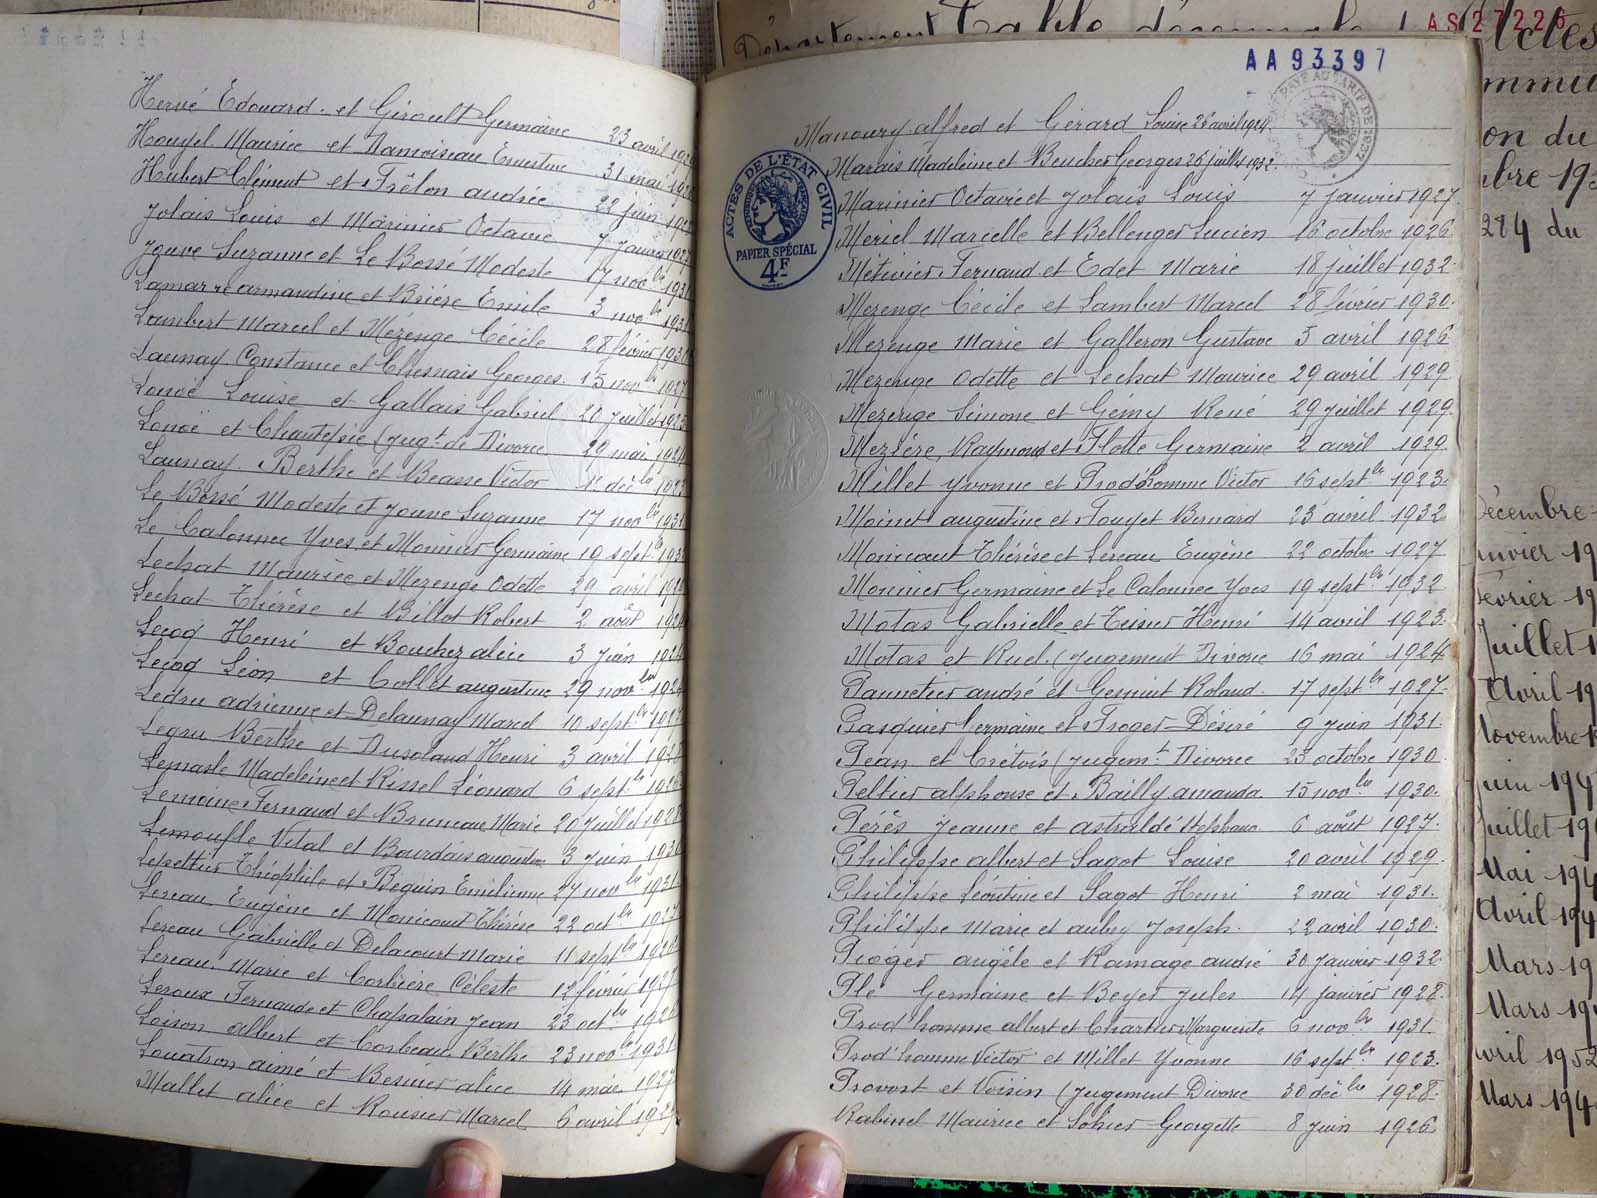 Hervé Edouard et Girault Germaine 23 avril
Houyel Maurice et Damoiseau Ernestine 31 mai
Hubert Clément et Frêlon andrée 22 juin
Jolais Louis et Marinier Octavie 7 janvier
Jouve Suzanne et Le Bossé Modeste 17 nov bre 1931
armandine et Brière Emile 3 nov bre 1931
Lambert Marcel et Mézenge Cécile 28 février 1930
Launay Constance et Chesnais Georges 15 nov bre 1927
Louise et Gallais Gabriel 20 juillet
et Chantepie (jugt de Divorce 29 mai
Launay Berthe et Beasse Victor 1er déc bre 1923
Le Bossé Modeste et Jouve Suzanne 17 nov bre 1931
Le Calonnec Yves et Monnier Germaine 19 sept bre 1932
Lechat Maurice et Mezenge Odette 29 avril 1929
Lechat Thérèse et Billot Robert 2 août
Lecoq Henri et Bouchez alice 3 juin
Lecoq Léon et Collet augustine 29 nov bre 1924
Ledru adrienne et Delaunay Marcel 10 sept bre 1927
Legru Berthe et Henri 3 avril 1928
Lemasle Madeleine et Rissel Léonard 6 sept bre 1926
Lemoine Fernand et Bruneau Marie 20 juillet 1928
Lemoufle Vital et Bourdais augustine 3 juin 1930
Lepeltier Théophile et Beguin Emilienne 27 nov bre 1931
Lereau Eugène et Monicaut Thérèse 22 oct bre 1927
Lereau Gabrielle et Delacourt Marie 11 sept bre
Lereau Marie et Corbière Céleste 12 février 1927
Leroux Fernande et Chapalain Jean 23 oct bre
Loison albert et Corbeau Berthe 23 nov bre 1931
Louatron aimé et Besnier alice 14 mai 1927
Mallet alice et Rousier Marcel 6 avril
AA93397
PAYE AU TARIF DE 1937
ACTES DE L'ÉTAT CIVIL
PAPIER SPÉCIAL
4F
Manoury alfred et Gérard Louise 26 avril 1924
Marais Madeleine et Boucher Georges 26 juillet 1932
Marinier Octavie et Jolais Louis 7 janvier 1927
Meriel Marcelle et Bellenger Lucien 16 octobre 1926
Métivier Fernand et Edet Marie 18 juillet 1932
Mezenge Cécile et Lambert Marcel 28 février 1930
Mezenge Marie et Gasleron Gustave 5 avril 1926
Mezenge Odette et Lechat Maurice 29 avril 1929
Mezenge Simone et Gémy René 29 juillet 1929
Mezière, Raymond et Flotte Germaine 2 avril 1929
Millet Yvonne et Prod'homme Victor 16 sept bre 1923
Moinet augustine et Fouyet Bernard 23 avril 1932
Monicaut Thérèse et Lereau Eugène 22 octobre 1927
Monnier Germaine et Le Calonnec Yves 19 sept bre 1932
Motas Gabrielle et Henri 14 avril 1923
Motas et Ruel (jugement Divorce 16 mai 1924
Pannetier andré et Gesniut Rolande 17 sept bre 1927
Pasquier Germaine et Froger Désiré 9 juin 1931
Péan et Crétois (jugemt Divorce 23 octobre 1930
Peltier alphonse et Bailly amanda 15 nov bre 1930
Pérès Jeanne et Stéphane 6 août 1927
Philippe albert et Sagot Louise 20 avril 1929
Philippe Léontine et Sagot Henri 2 mai 1931
Philippe Marie et aubry Joseph 22 avril 1930
Pioger angèle et Ramage andré 30 janvier 1932
Plé Germaine et Beyer Jules 14 janvier 1928
Prod'homme albert et Chartier Marguerite 6 nov bre 1931
Prod'homme Victor et Millet Yvonne 16 sept bre 1923
Provost et Voisin (jugement Divorce 30 déc bre 1928
Rabinel Maurice et Sohier Georgette 8 juin 1926
AS27226
Département Table décennale Actes
on du
bre 19
284 du
Décembre
anvier 19
Février 19
Juillet 1
Avril 19
Novembre
juin 194
Juillet 19
Mai 194
Avril 194
Mars 19
Mars 19
avril 1952
Mars 194